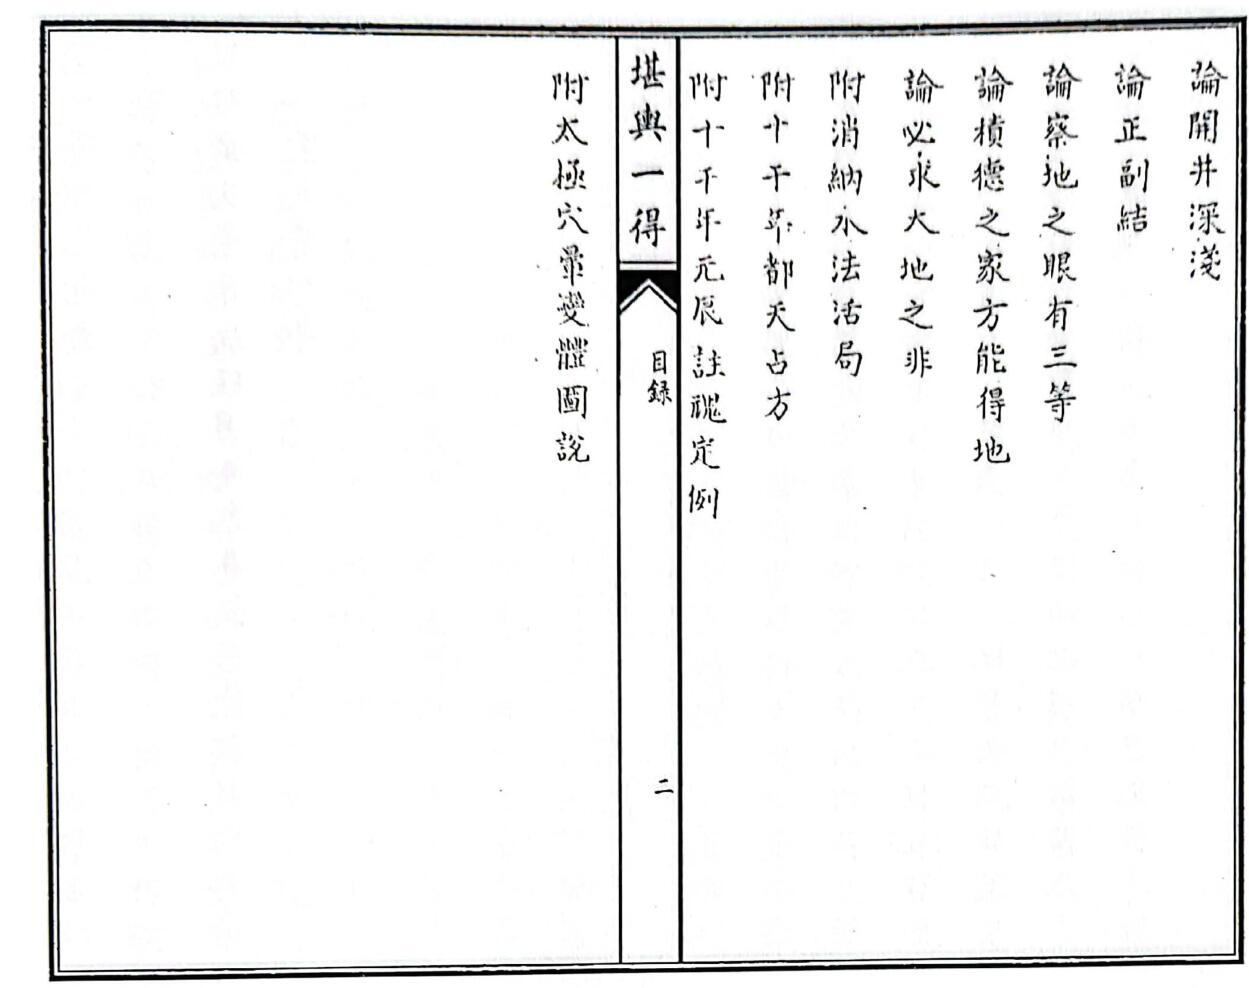 論開井深淺
論正副結
論察地之眼有三等
論積德之家方能得地
論必求大地之非
附消納水法活局
附十干年都天占方
附十干年元辰註魂定例
堪輿一得
目錄
二
附太極穴暈變體圖說